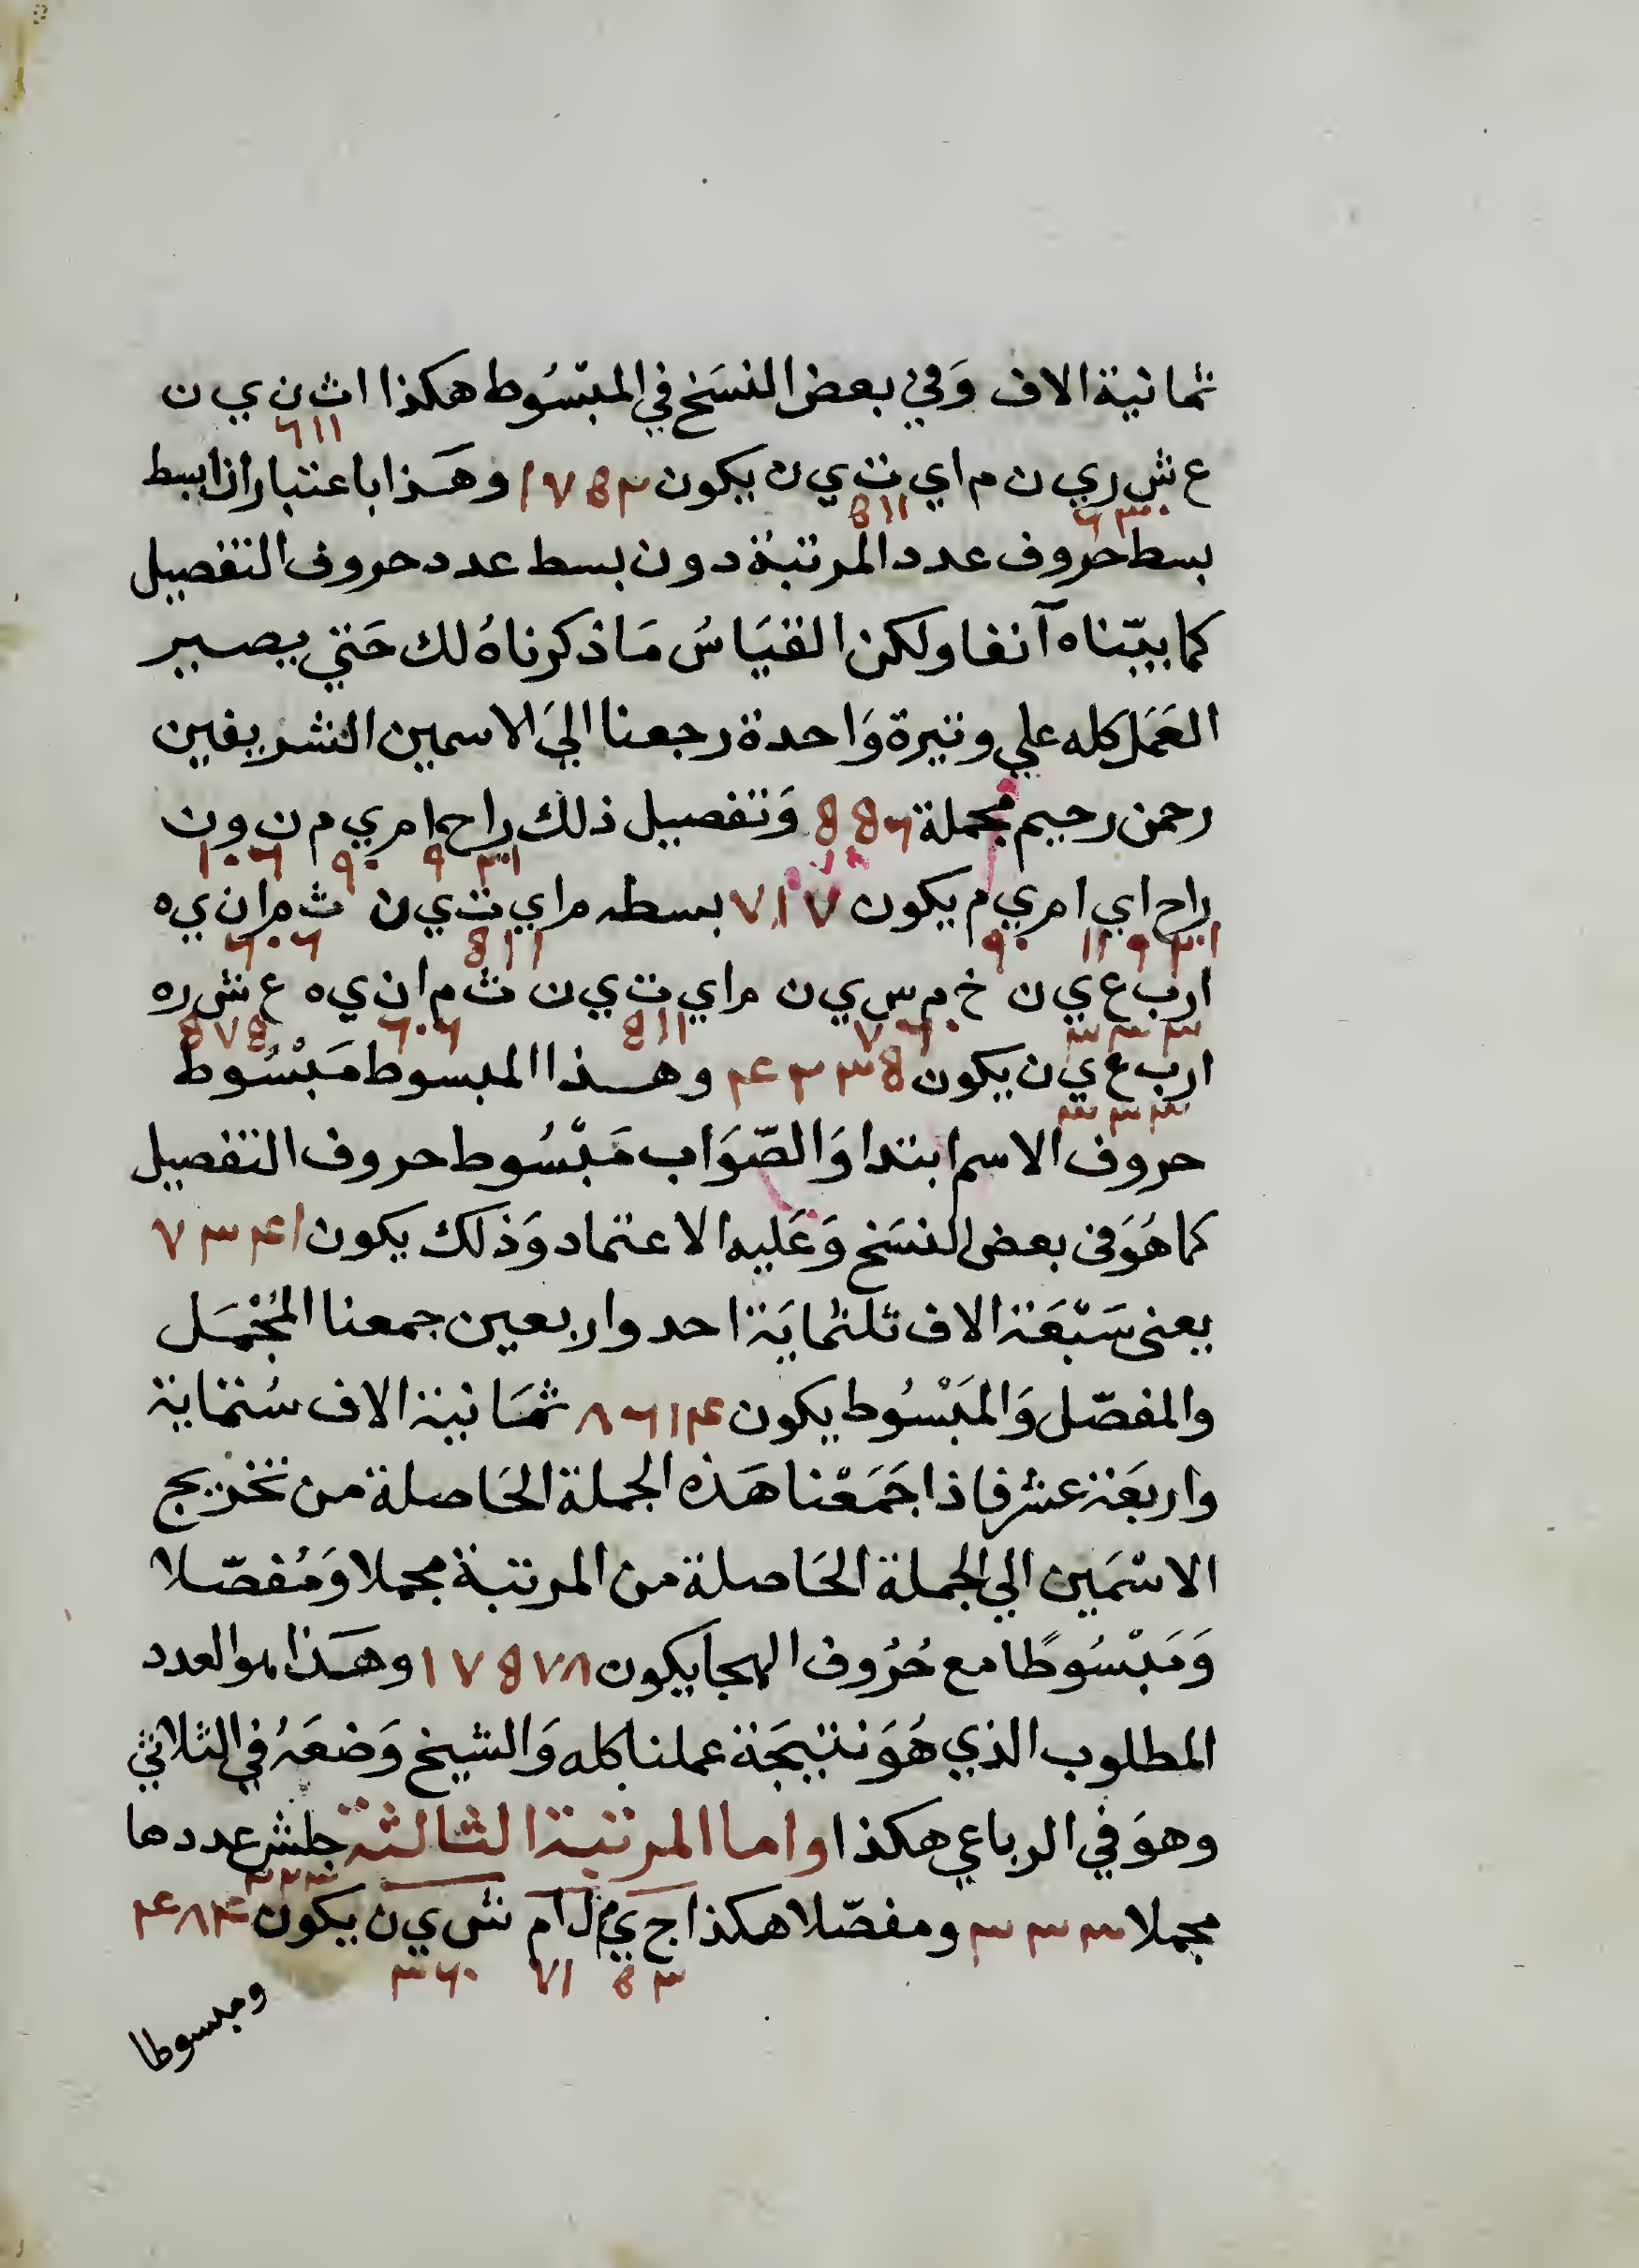 ثمانية الاف وَفي بعض النسَخ في المبْسُوط هكذا ا ث ن ي ن
٦١١
ع ش ر ي ن م ا ي ت ي ن يكون ١٧٥٣ وهَذا باعتبار انا بسط
٦٣٠ ٥١١
بسط حروف عدد المرتبة دون بسط عدد حروف التفصيل
كما بيّناه آنفا ولكن القيَاسُ مَا ذكرناهُ لك حَتي يصير
العَمَل كله علي وتيرة وَاحدة رجعنا اليَ الاسمين الشريفين
رحمن رحيم مجملة ٥٥٦ وَتفصيل ذلك را حا م ري م ن ون
٢٠١ ٩ ٩٠ ١٠٦
را ح ا ي ا م ري م يكون ٧١٧ بسطه م ا ي ت ي ن ث م ا ن ي ه
٢٠١ ٩ ١١ ٩٠ ٥١١ ٦٠٦
ا ر ب ع ي ن خ م س ي ن م ا ي ت ي ن ث م ا ن ي ه ع ش ر ه
٣٣٣ ٧٦٠ ٥١١ ٦٠٦ ٥٧٥
ا ر ب ع ي ن يكون ٤٣٣٥ وهذا المبسوط مَبْسُوط
٣٣٣
حروف الاسم ابتدا وَالصّوَاب مَبْسُوط حروف التفصيل
كما هُوَ في بعض النسَخ وَعَليه الاعتماد وَذلك يكون ٧٣٤١
يعني سَبْعَة الاف ثلثماية احد واربعين جمعنا المُجْمَل
والمفصّل وَالمَبْسُوط يكون ٨٦١٤ ثمَانية الاف سُتماية
واربعَة عشر فاذا جَمَعْنا هَذه الجملة الحَاصلة من تخريج
الاسْمَين الي الجملة الحَاصلة من المرتبة مجملا وَمُفصّلا
وَمَبْسُوطًا مع حُرُوف الهجا يكون ١٧٥٧٨ وهَذا هو العدد
المطلوب الذي هُوَ نتيجَة عملنا كله وَالشيخ وَضعَهُ في الثلاثي
وهوَ في الرباعي هكذا واما المرتبة الثالثة جلش عددها
٣٣٣
مجملا ٣٣٣ ومفصّلا هكذا ج ي م ل ا م ش ي ن يكون ٤٨٤
٥٣ ٧١ ٣٦٠
ومبسوطا